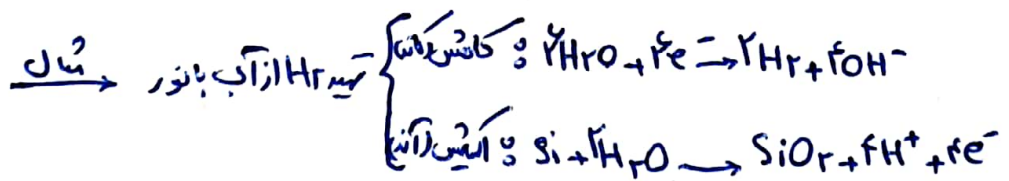 مثال → تهیه H۲ از آب با نور
کاهش (کاتد) : ۴H۲O + ۴e⁻ → ۲H۲ + ۴OH⁻
اکسایش (آند) : Si + ۲H۲O → SiO۲ + ۴H⁺ + ۴e⁻